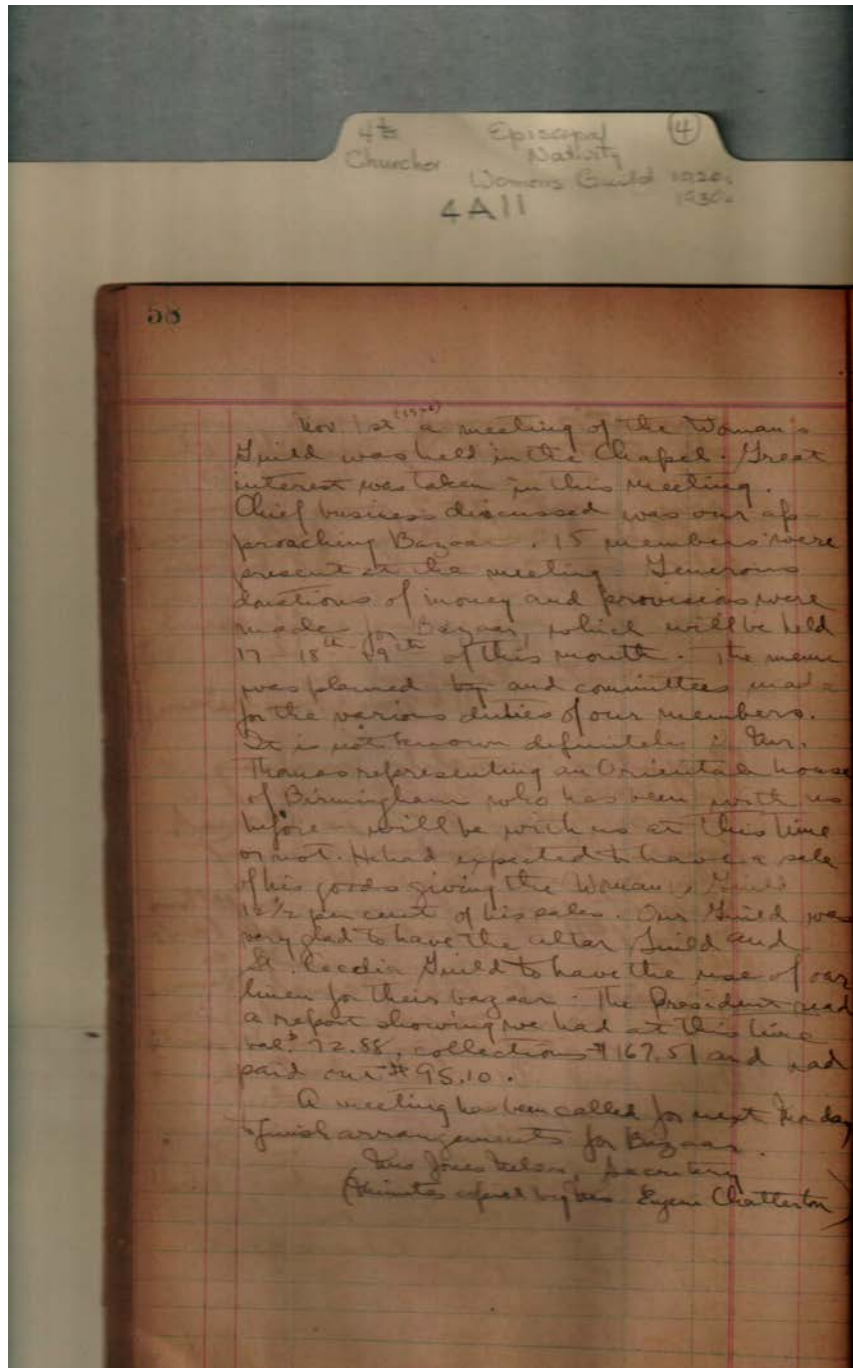 4th Episcopal ④
Churches Nativity
Womens Guild 1920s
1930s
4A11
58
Nov. 1st a meeting of the Woman's
Guild was held in the Chapel. Great
interest was taken in this meeting.
Chief business discussed was our ap-
proaching Bazaar. 15 members were
present at the meeting. Generous
donations of money and provisions were
made for Bazaar, which will be held
17 - 18th & 19th of this month. The menu
was planned by and committees made
for the various duties of our members.
It is not known definitely if Mr.
Thomas representing an Oriental house
of Birmingham who has been with us
before - will be with us at this time
or not. He had expected to have a sale
of his goods giving the Woman's Guild
12 1/2 per cent of his sales. Our Guild was
very glad to have the altar Guild and
St. Cecelia Guild to have the use of our
linen for their bazaar. The President read
a report showing we had at this time
bal. $72.88, collections $167.51 and had
paid out $95.10.
A meeting has been called for next Monday
to finish arrangements for Bazaar.
Mrs Jones Nelson, Secretary
(Minutes copied by Mrs Eugene Chatterton)